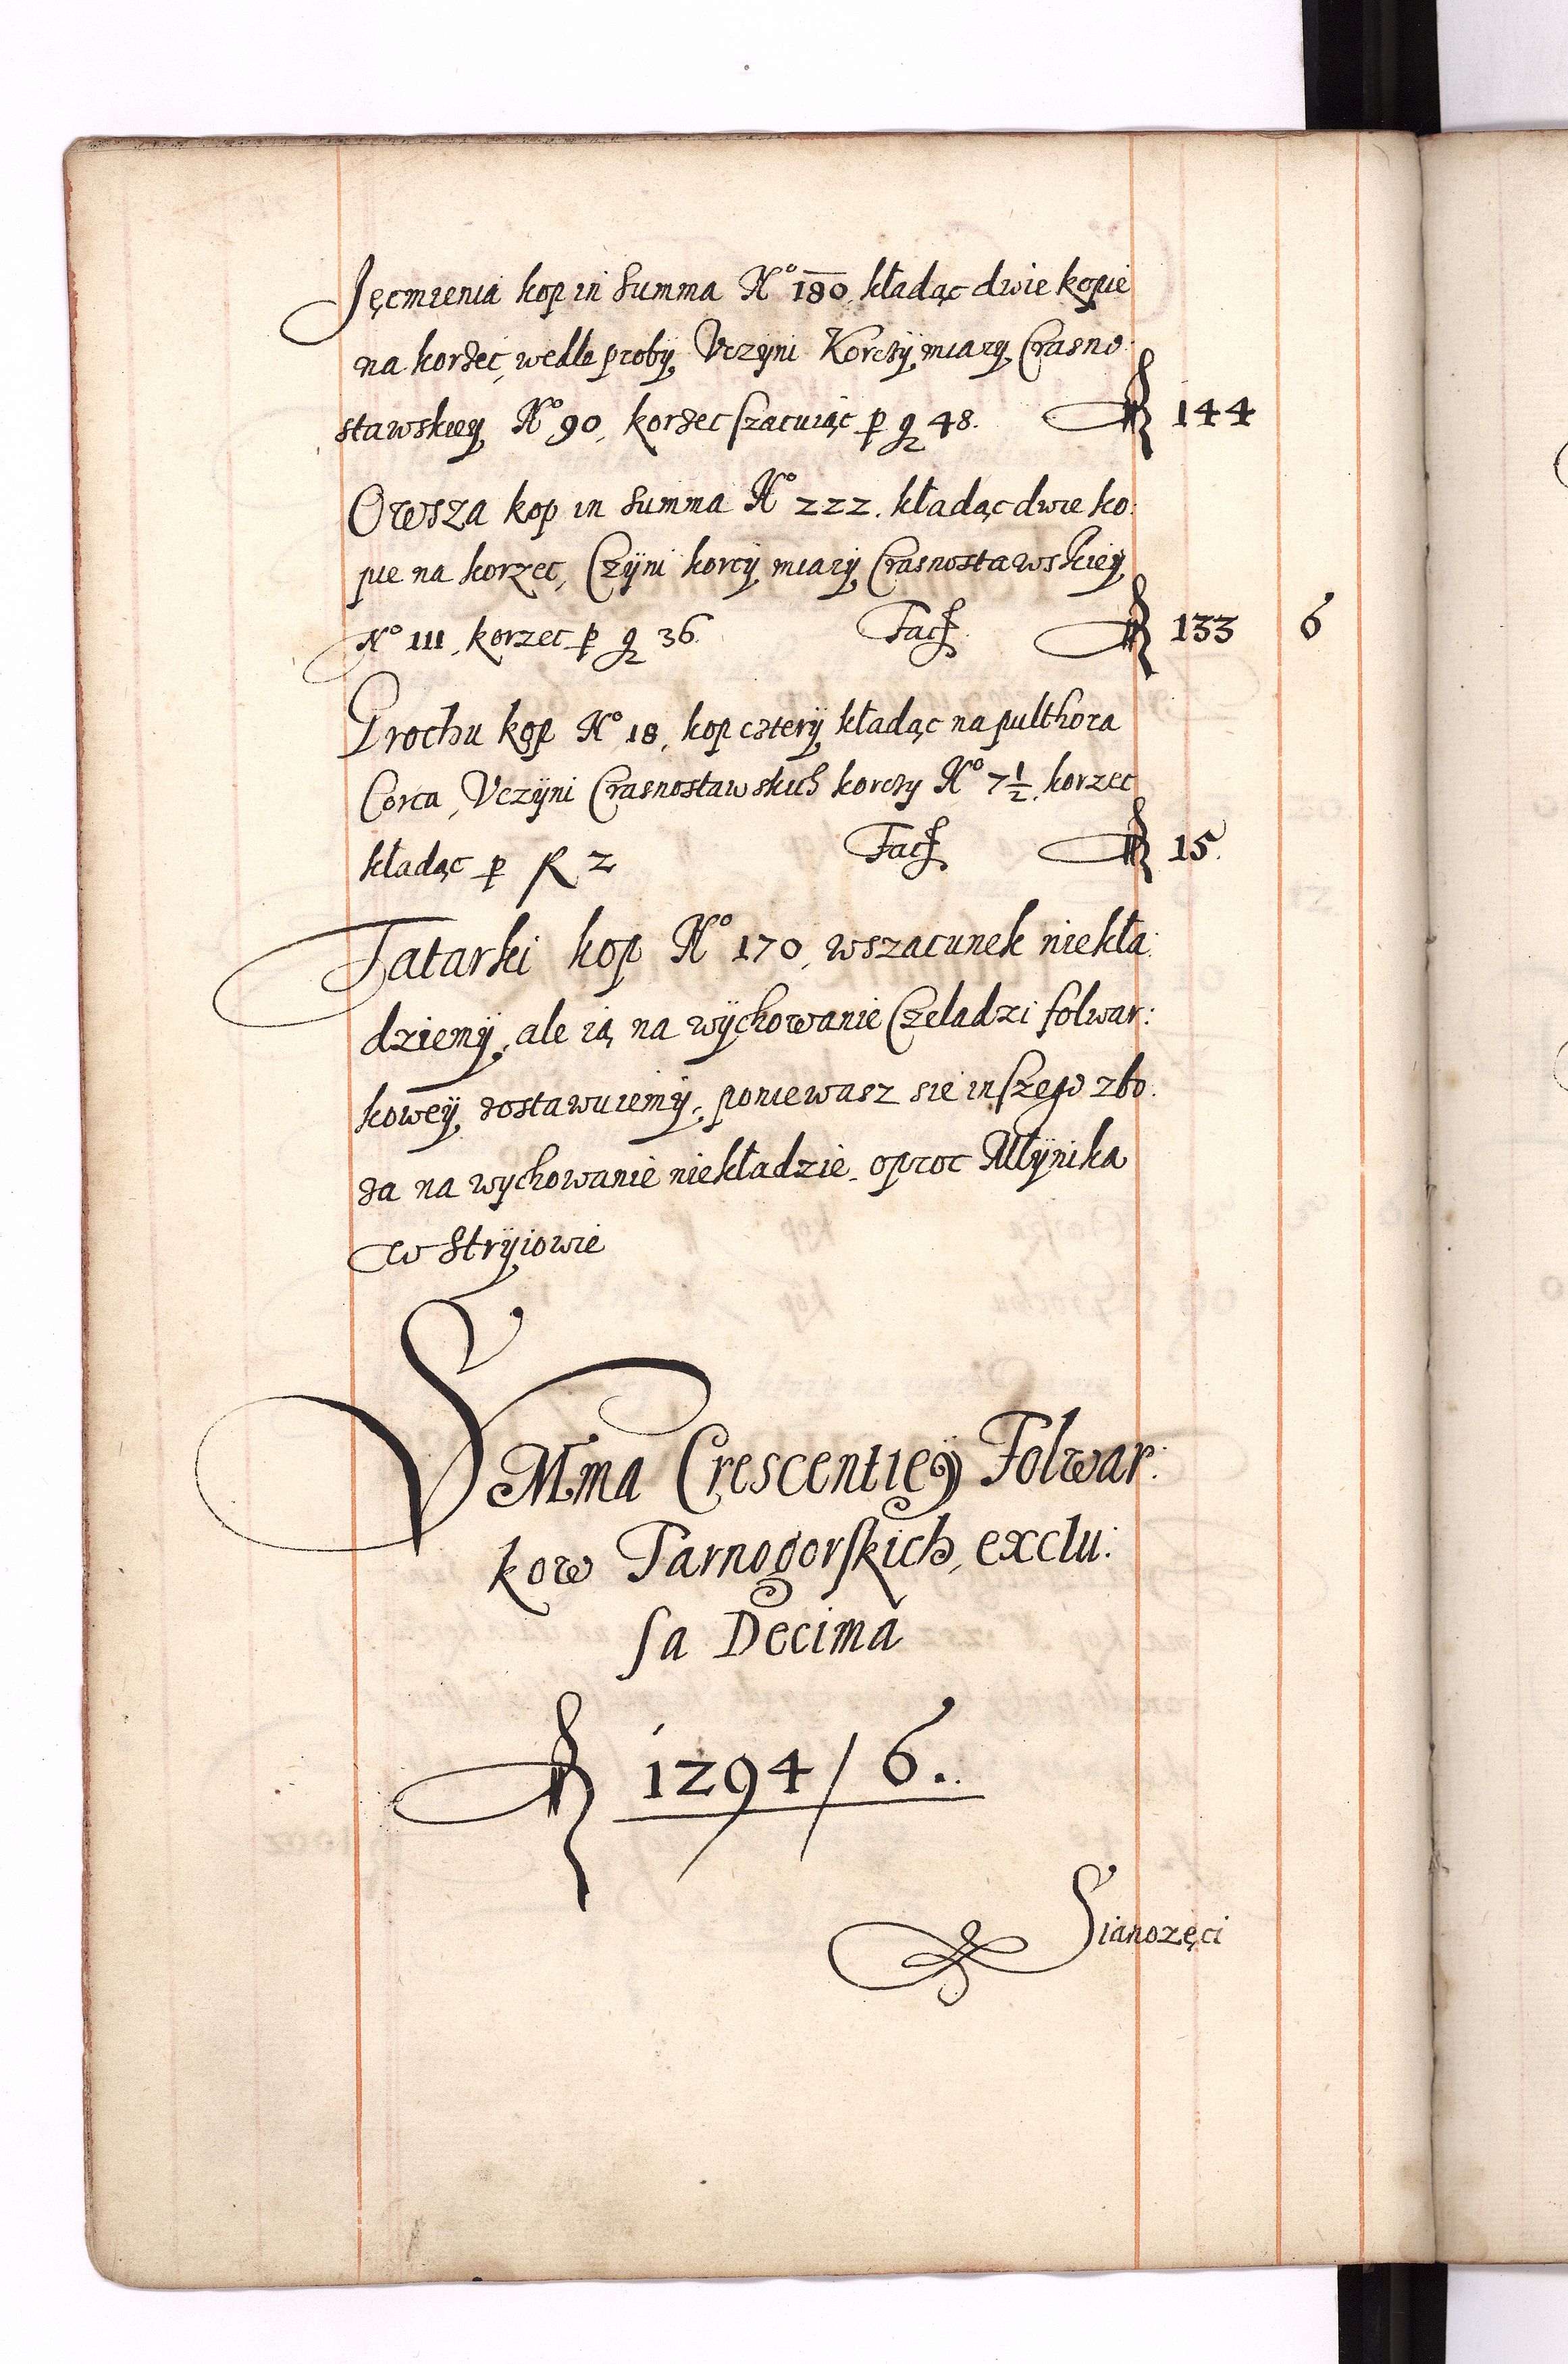 Jęcmienia kop in Summa No 180, kładąc dwie kopie
na korzec, wedle proby, Vczÿni Korczÿ miary Crasno:
stawskieÿ No 90, korzec szacuiąc p g 48. f 144
Owsza kop in Summa No 222. kładąc dwie ko:
pie na korzec, Czÿni korcÿ miarÿ Crasnostawskieÿ
No 111, korzec p g 36. Facf f 133 6
Grochu kop No 18, kop czterÿ kładąc na pulthora
Corca, Vczÿni Crasnostawskich korczy No 7½, korzec
kładąc p f 2 Facf f 15.
Tatarki kop No 170, wszacunek niekła:
dziemÿ, ale ią na wÿchowanie Czeladzi folwar:
koweÿ zostawuiemÿ, poniewasz sie inszego zbo:
za na wychowanie niekładzie, oproc Młÿnika
w Strÿiowie
SVMma Crescentieÿ Folwar:
kow Tarnogorskich, exclu:
sa Decima
f 1294 / 6..
Sianozęci